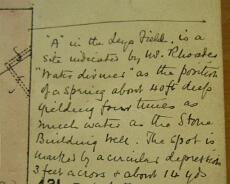 "A" in the Leys Field, is a
site indicated by Mr. Rhodes
"Water diviner" as the position
of a Spring about 40ft deep
yielding four times as
much water as the Stone
Building Well. The spot is
marked by a circular depression
3 feet across & about 14 yds